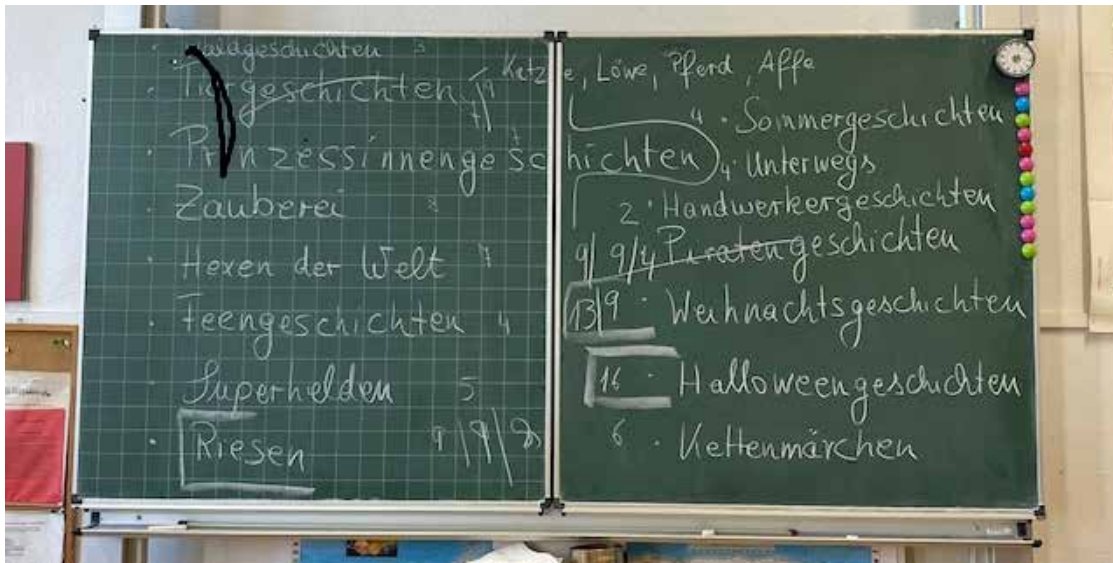 Waldgeschichten 3
Tiergeschichten 7/9
Katze, Löwe, Pferd, Affe
Prinzessinnengeschichten 7
Zauberei
Hexen der Welt 7
Feengeschichten 4
Superhelden 5
Riesen 9/9/8
4 · Sommergeschichten
4 · Unterwegs
2 · Handwerkergeschichten
9/9/4 Piratengeschichten
13/9 · Weihnachtsgeschichten
16 · Halloweengeschichten
6 · Kettenmärchen